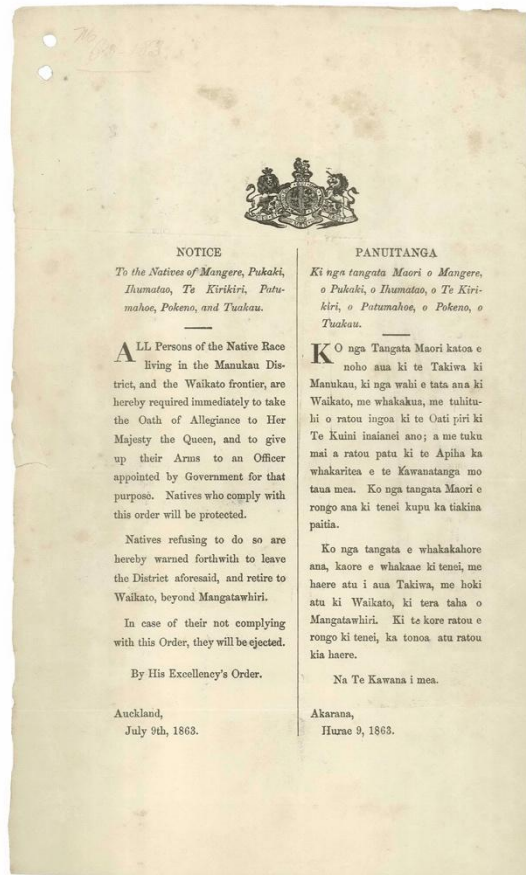 NOTICE
To the Natives of Mangere, Pukaki,
Ihumatao, Te Kirikiri, Patu-
mahoe, Pokeno, and Tuakau.
ALL Persons of the Native Race
living in the Manukau Dis-
trict, and the Waikato frontier, are
hereby required immediately to take
the Oath of Allegiance to Her
Majesty the Queen, and to give
up their Arms to an Officer
appointed by Government for that
purpose. Natives who comply with
this order will be protected.
Natives refusing to do so are
hereby warned forthwith to leave
the District aforesaid, and retire to
Waikato, beyond Mangatawhiri.
In case of their not complying
with this Order, they will be ejected.
By His Excellency's Order.
Auckland,
July 9th, 1863.
PANUITANGA
Ki nga tangata Maori o Mangere,
o Pukaki, o Ihumatao, o Te Kiri-
kiri, o Patumahoe, o Pokeno, o
Tuakau.
KO nga Tangata Maori katoa e
noho aua ki te Takiwa ki
Manukau, ki nga wahi e tata ana ki
Waikato, me whakakua, me tuhitu-
hi o ratou ingoa ki te Oati piri ki
Te Kuini inaianei ano; a me tuku
mai a ratou patu ki te Apiha ka
whakaritea e te Kawanatanga mo
taua mea. Ko nga tangata Maori e
rongo ana ki tenei kupu ka tiakina
paitia.
Ko nga tangata e whakakahore
ana, kaore e whakaae ki tenei, me
haere atu i aua Takiwa, me hoki
atu ki Waikato, ki tera taha o
Mangatawhiri. Ki te kore ratou e
rongo ki tenei, ka tonoa atu ratou
kia haere.
Na Te Kawana i mea.
Akarana,
Hurae 9, 1863.